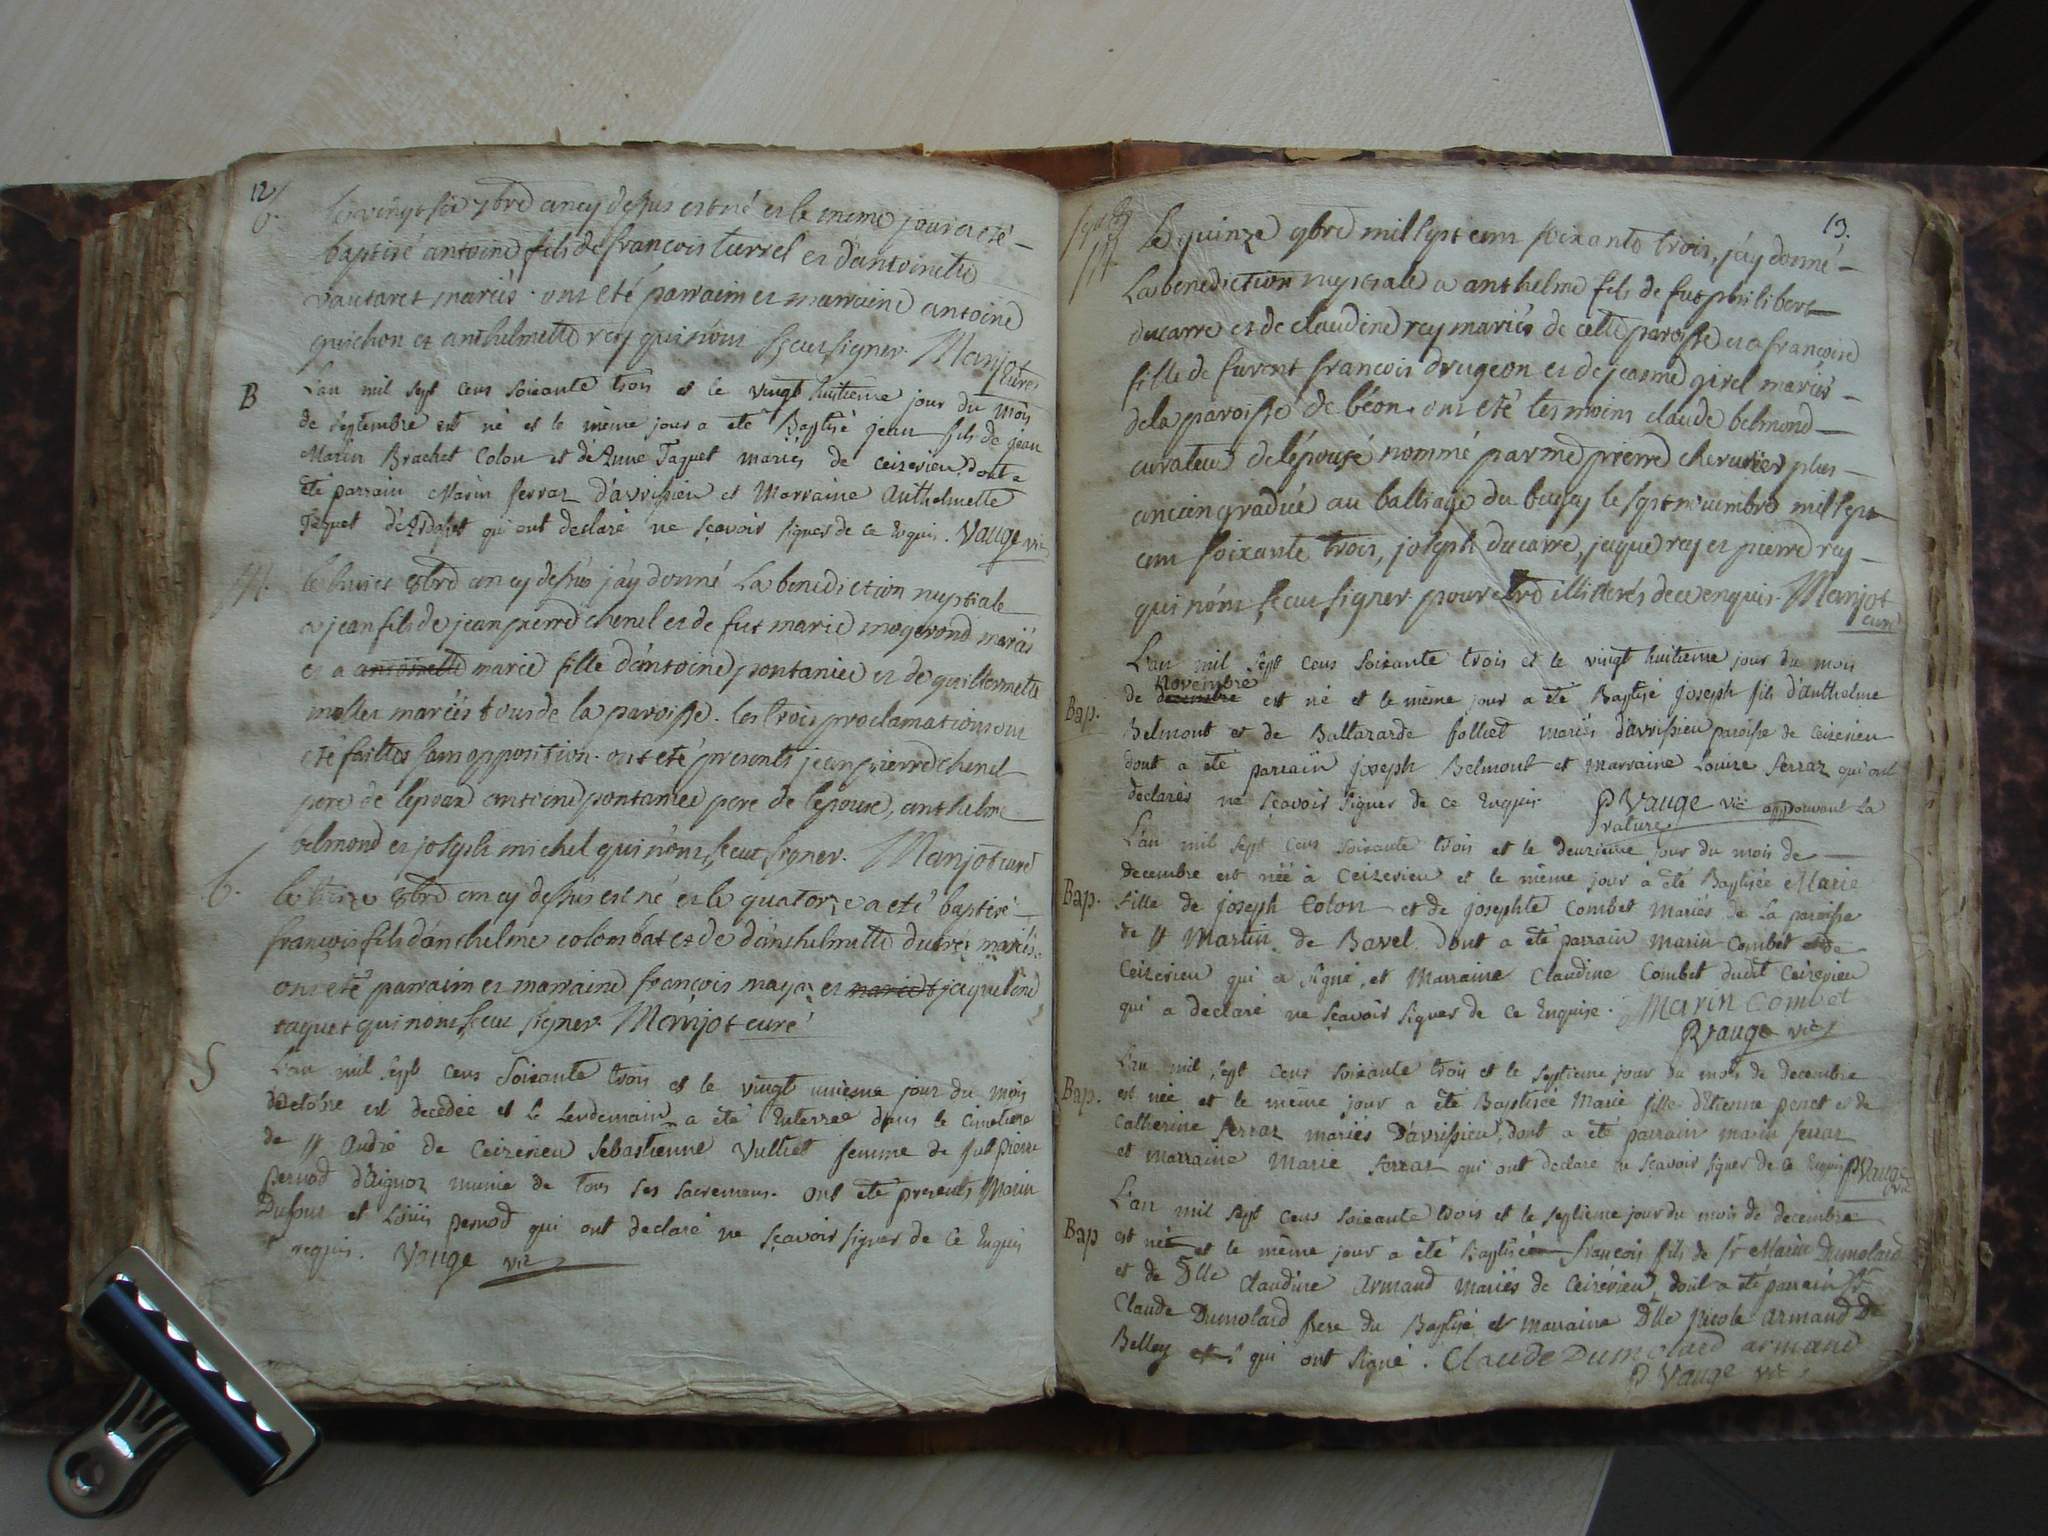 12
b.
le vingt six 7bre an cy dessus est né et le meme jour a eté
baptisé antoine fils de francois turrel et d'antoinette
vautaret mariés. ont eté parrain et marraine antoine
guichon et anthelmette rey qui n'ont sçeu signer. Manjot
curé
B
L'an mil sept cens soixante trois et le vingt huitieme jour du mois
de septembre est né et le même jour a eté Baptisé jean fils de jean
Marin Brachet Colon et d'Anne Taquet mariés de Ceizerieu dont a
été parrain Marin ferraz d'avrissieu et Marraine Anthelmette
Taquet d'Ardosset qui ont declaré ne sçavoir signer de ce Enquis. Vauge vic
M.
le huict 8bre an cy dessus j'ay donné La benediction nuptiale
a jean fils de jean pierre chenel et de fut marie mogerond mariés
et a antoinette marie fille d'antoine pontanier et de guillermette
mollet mariés tous de la paroisse. les trois proclamations ont
eté faittes sans opposition. ont eté presents jean pierre chenel
pere de l'epoux antoine pontanier pere de l'epouse, anthelme
belmond et joseph michel qui n'ont sçeut signer. Manjot curé
b.
le treize 8bre an cy dessus est né et le quatorze a eté baptisé
françois fils d'anthelme colombat et de d'anthelmette ducrés mariés.
ont eté parrain et marraine françois maya et marie jaqueline
taquet qui n'ont sçeu signer. Manjot curé
S
L'an mil sept cens Soixante trois et le vingt unieme jour du mois
d'octobre est decedée et le Lendemain a eté Enterrée dans le Cimetiere
de st André de Ceizerieu Sebastienne Vulliet femme de fut Pierre
Pernod d'Aignoz munie de tous ses sacremens. ont eté presents Marin
Dufour et Loüis pernod qui ont declaré ne sçavoir signer de Ce Enquis
requis. Vauge vic
13.
M.
Le quinze 9bre mil sept cent soixante trois, j'ay donné
La benediction nuptiale a anthelme fils de fut philibert
ducarre et de claudine rey mariés de cette paroisse et a françoise
fille de furent françois drugeon et de jeanne girel mariés
de la paroisse de béon. ont eté tesmoins claude belmond
curateur de l'épouse nommé par me pierre chervrier plus
ancien gradué au balliage du bugey le sept novembre mil sept
cent soixante trois, joseph ducarre, jaque rey et pierre rey
qui n'ont sçeut signer pour etre illitterés de ce enquis. Manjot
curé
Bap.
L'an mil sept cens soixante trois et le vingt huitieme jour du mois
Novembre
de decembre est né et le même jour a été Baptisé joseph fils d'Anthelme
Belmont et de Baltazarde folliet mariés d'avrissieu paroisse de Ceizerieu
dont a eté parrain joseph Belmont et marraine Louise ferraz qui ont
declarés ne sçavoir signer de ce Enquis PVauge vic approuvant La
rature
Bap.
L'an mil sept cens soixante trois et le deuzieme jour du mois de
decembre est néé à Ceizerieu et le même jour a été Baptisée Marie
fille de joseph Colon et de josephte Combet mariés de la paroisse
de st Martin de Bavel. dont a été parrain marin Combet de
Ceizerieu qui a signé, et Marraine Claudine Combet dudit Ceizerieu
qui a declaré ne sçavoir signer de ce Enquise. Marin Combet
PVauge vic
Bap.
L'an mil sept cens soixante trois et le septieme jour du mois de decembre
est née et le même jour a eté Baptisée Marie fille d'Etienne penet et de
Catherine ferraz mariés D'avrissieu, dont a eté parrain marin ferraz
et marraine Marie ferraz qui ont declaré ne sçavoir signer de ce Enquis PVauge
vic
Bap
L'an mil sept cens soixante trois et le septieme jour du mois de decembre
est né et le même jour a été Baptisé francois fils de sr Marin Dumolard
et de Dlle Claudine Armand mariés de Ceizérieu, dont a été parrain sr
Claude Dumolard frere du Baptisé et marraine Dlle Nicole Armand De
Belley et qui ont signé. Claude Dumolard armand
P Vauge vic